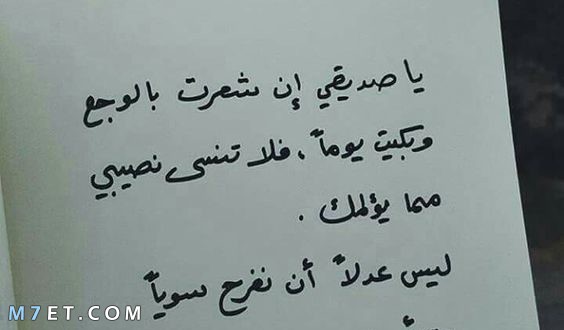 يا صديقي إن شعرت بالوجع
وبكيت يوماً ، فلا تنسى نصيبي
مما يؤلمك .
ليس عدلاً أن نفرح سوياً
M7ET.COM